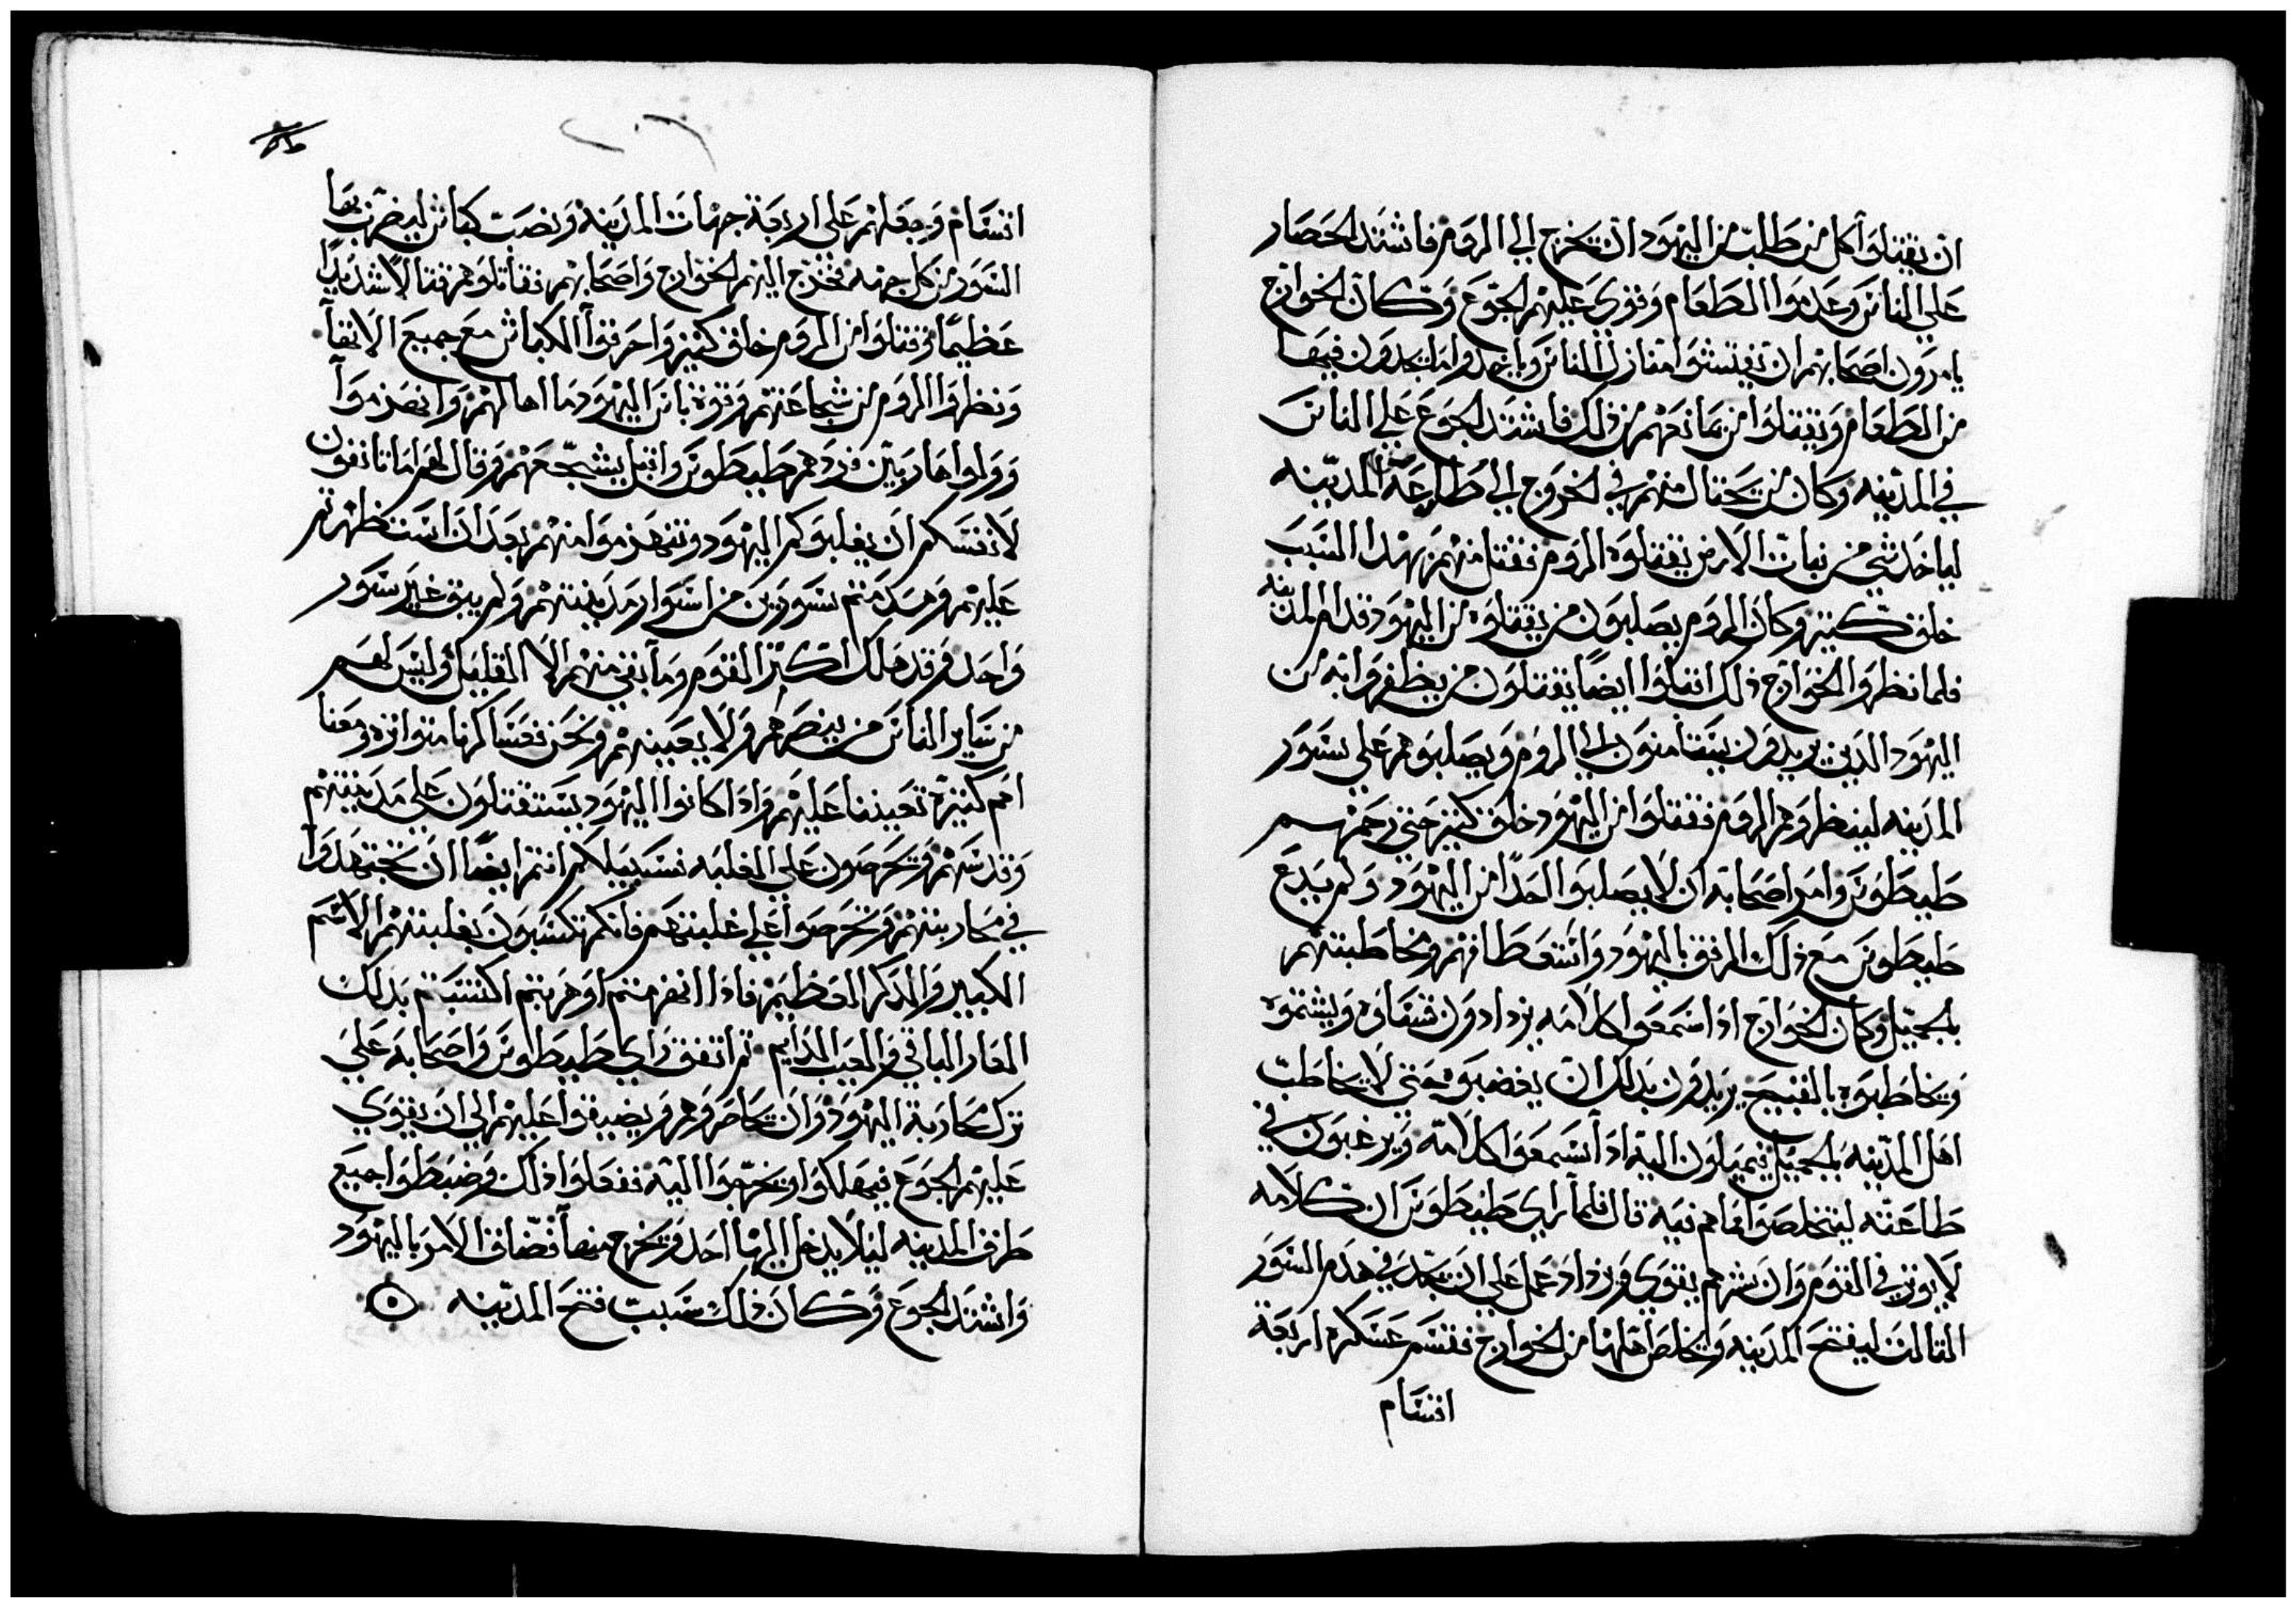 ان يقتلوا كل من طلب من اليهود ان يخرج الي الروم فاشتد الحصار
علي الناس وعدموا الطعام وقوي عليهم الجوع وكان الخوارج
يامرون اصحابهم ان يفتشوا منازل الناس وياخدوا ما يجدون فيها
من الطعام ويقتلوا من يمانعهم من ذلك فاشتد الجوع علي الناس
في المدينه وكان من يحتال منهم في الخروج الي طاهر المدينه
لياخد شي من نبات الارض يقتلوه الروم فقتل منهم بهدا السبب
خلق كثير وكان الروم يصلبون من يقتلوه من اليهود قدام المدينه
فلما نظروا الخوارج ذلك اقبلوا ايضا يقتلون من يظفروا به من
اليهود الدين يريدون يستامنون الي الروم ويصلبوهم علي سور
المدينه لينظروهم الروم فقتلوا من اليهود خلق كثير حتي رحمهم
طيطوس وامر اصحابه ان لا يصلبوا احدا من اليهود ولم يدع
طيطوس مع ذلك الرفق باليهود واستعطافهم ومخاطبتهم
بالجميل وكان الخوارج اذا سمعوا كلامه يزدادون قساوه ويشتموه
ويخاطبوه بالقبيح يريدون بدلك ان يغضبوه حتي لا يخاطب
اهل المدينه بالجميل فيميلون اليه اذا سمعوا كلامه ويرغبون في
طاعته ليتخلصوا مما هم فيه قال فلما راي طيطوس ان كلامه
لا يوثر في القوم وان شرهم يقوي ويزداد عمل علي ان يجد في هدم السور
الثالث ليفتح المدينه ويخلص اهلها من الخوارج فقسم عسكره اربعة
اقسام
اقسام وجعلهم علي اربعة جهات المدينه ونصب كباش ليضرب بها
السور من كل جهه فخرج اليهم الخوارج واصحابهم فقاتلوهم قتالا شديدا
عظيما وقتلوا من الروم خلق كثير واحرقوا الكباش مع جميع الالات
ونظروا الروم من شجاعتهم وقوة باس اليهود ما اهالهم وانهزموا
وولوا هاربين فردهم طيطوس واقبل يشجعهم وقال لهم اما تانفون
لانفسكم ان يغلبوكم اليهود وتنهزموا منهم بعد ان استظهرتم
عليهم وهدمتم سورين من اسوار مدينتهم ولم يبق غير سور
واحد وقد هلك اكثر القوم وما بقي منهم الا القليل وليس لهم
من ساير الناس من ينصرهم ولا يعينهم ونحن فعساكرنا متواتره ومعنا
امم كثيرة تعيننا عليهم واذا كانوا اليهود يستقتلون علي مدينتهم
وقدسهم ويحرصون علي الغلبه فسبيلكم انتم ايضا ان تجتهدوا
في محاربتهم وتحرصوا علي غلبتهم فانكم تكسبون بغلبتهم الاسم
الكبير والدكر العظيم فاذا انهزمتم او هربتم اكتسبتم بدلك
العار الباقي والعيب الدايم ثم اتفق راي طيطوس واصحابه علي
ترك محاربة اليهود وان يحاصروهم ويضيقوا عليهم الي ان يقوي
عليهم الجوع فيهلكوا او يخرجوا اليه ففعلوا ذلك وضبطوا جميع
طرق المدينه ليلا يدخل اليها احد ويخرج منها فضاق الامر باليهود
واشتد الجوع وكان ذلك سبب فتح المدينه